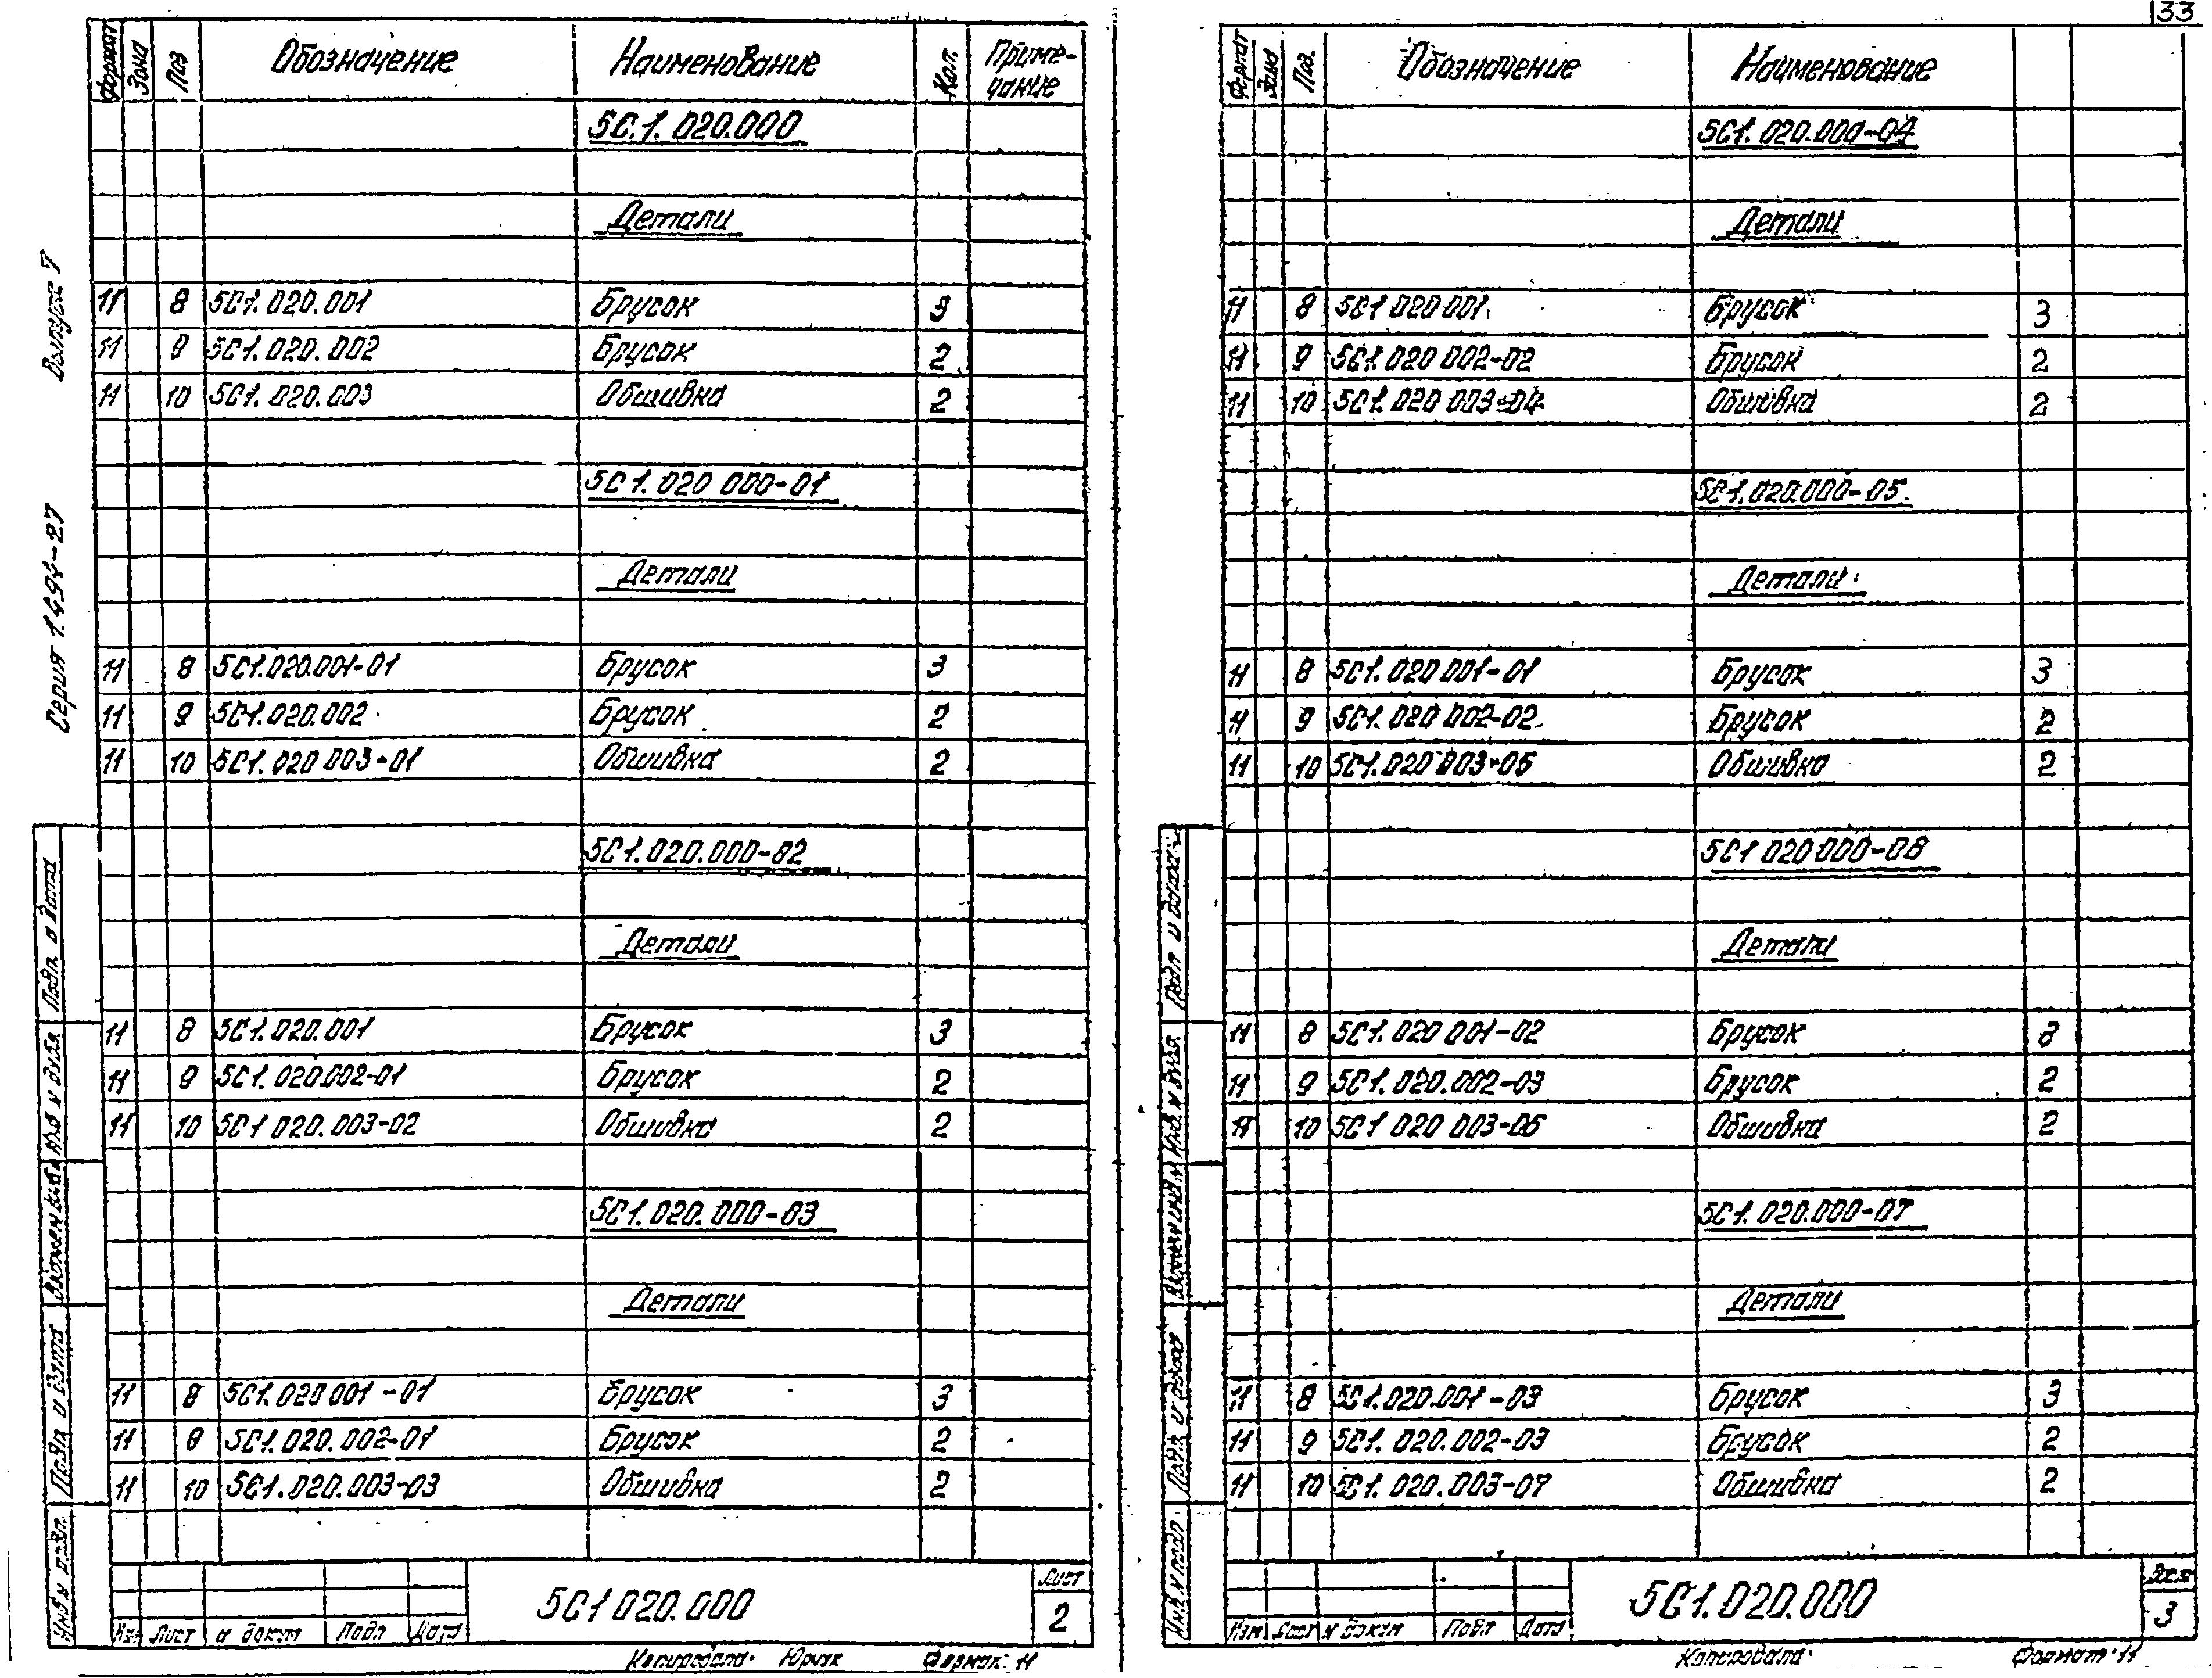 33
Выпуск 7
Серия 1.494-27
Формат Зона Поз Обозначение Наименование Кол. Приме-
чание
5С.1.020.000
Детали
11 8 5С1.020.001 Брусок 3
11 9 5С1.020.002 Брусок 2
11 10 5С1.020.003 Обшивка 2
5С1.020 000-01
Детали
11 8 5С1.020.001-01 Брусок 3
11 9 5С1.020.002 Брусок 2
11 10 5С1.020 003-01 Обшивка 2
5С1.020.000-02
Детали
11 8 5С1.020.001 Брусок 3
11 9 5С1.020.002-01 Брусок 2
11 10 5С1 020.003-02 Обшивка 2
5С1.020.000-03
Детали
11 8 5С1.020 001-01 Брусок 3
11 9 5С1.020.002-01 Брусок 2
11 10 5С1.020.003-03 Обшивка 2
Инв № подл. Подп и дата Взамен инв № Инв № дубл. Подп. и дата
Изм Лист № докум Подп Дата
5С1 020.000
Лист
2
Копировала: Формат: 11
Формат Зона Поз. Обозначение Наименование
5С1.020.000-04
Детали
11 8 5С1 020 001 Брусок 3
11 9 5С1.020 002-02 Брусок 2
11 10 5С1.020 003-04 Обшивка 2
5С1.020.000-05
Детали
11 8 5С1.020 001-01 Брусок 3
11 9 5С1.020 002-02 Брусок 2
11 10 5С1.020 003-05 Обшивка 2
5С1 020 000-06
Детали
11 8 5С1.020 001-02 Брусок 3
11 9 5С1.020.002-03 Брусок 2
11 10 5С1 020 003-06 Обшивка 2
5С1.020.000-07
Детали
11 8 5С1.020.001-03 Брусок 3
11 9 5С1.020.002-03 Брусок 2
11 10 5С1.020.003-07 Обшивка 2
Инв № подл. Подп и дата Взамен инв № Инв № дубл. Подп и дата
Изм Лист № докум Подп Дата
5С1.020.000
Лист
3
Копировала: Формат 11